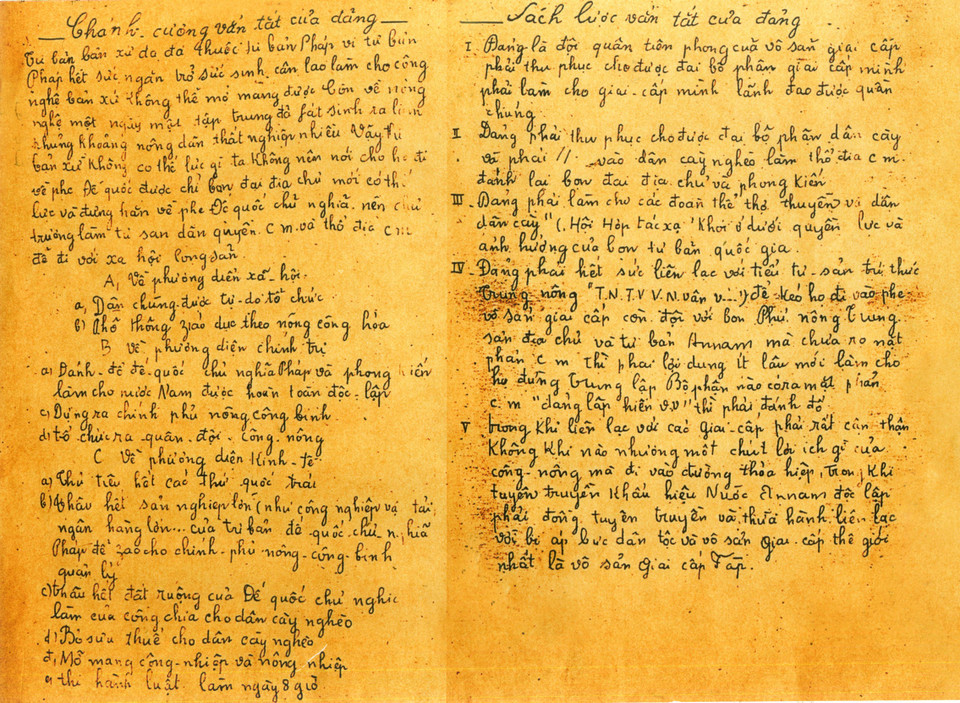 Chánh cương vắn tắt của đảng
Tư bản bản xứ do đã thuộc tư bản Pháp vì tư bản
Pháp hết sức ngăn trở sức sinh cần lao làm cho công
nghệ bản xứ không thể mở mang được Còn về nông
nghệ một ngày một tập trung đã fát sinh ra lắm
khủng khoảng nông dân thất nghiệp nhiều Vậy tư
bản xứ không có thế lực gì ta không nên nói cho họ đi
về phe Đế quốc được chỉ bọn đại địa chủ mới có thế
lực và đứng hẳn về phe Đế quốc chủ nghĩa nên chủ
trương làm tư sản dân quyền c m và thổ địa c m
để đi với xã hội cộng sản
A, Về phương diện xã hội
a, Dân chúng được tự do tổ chức
b) Phổ thông záo dục theo nông công hóa
B Về phương diện chính trị
a) Đánh đổ đế quốc chủ nghĩa Pháp và phong kiến
làm cho nước Nam được hoàn toàn độc lập
c) Dựng ra chính phủ nông công binh
d) tổ chức ra quân đội công nông
C Về phương diện Kinh tế
a) Thủ tiêu hết các thứ quốc trái
b) thâu hết sản nghiệp lớn (như công nghiệp vận tải
ngân hàng lớn... của tư bản đế quốc chủ nghĩa
Pháp để zao cho chính phủ nông công binh
quản lý
c) thâu hết đất ruộng của Đế quốc chủ nghĩa
làm của công chia cho dân cày nghèo
d) Bỏ sưu thuế cho dân cày nghèo
đ, Mở mang công-nghiệp và nông nghiệp
e, thi hành luật làm ngày 8 giờ
Sách lược vắn tắt của đảng
I. Đảng là đội quân tiên phong của vô sản giai cấp
phải thu phục cho được đại bộ phận giai cấp mình
phải làm cho giai-cấp mình lãnh đạo được quần
chúng
II Đảng phải thu phục cho được đại bộ phận dân cày
và phải // vào dân cày nghèo làm thổ địa c m.
đánh lại bọn đại địa chủ và phong kiến
III. Đảng phải làm cho các đoàn thể thợ thuyền và dân
dân cày" (Hội Hợp tác xạ" Khỏi ở dưới quyền lực và
ảnh hưởng của bọn tư bản quốc gia.
IV Đảng phải hết sức liên lạc với tiểu tư sản trí thức
trung nông "T.N.T.V V.N. vân v...") để kéo họ đi vào phe
vô sản giai cấp còn đội với bọn Phú nông Trung
sản địa chủ và tư bản Annam mà chưa rõ mặt
phản c m thì phải lợi dụng ít lâu mới làm cho
họ đứng trung lập Bộ phận nào có ra mặt phản
c m "đảng lập hiến v.v" thì phải đánh đổ
V trong khi liên lạc với các Giai-cấp phải rất cẩn thận
không khi nào nhường một chút lợi ích gì của
công-nông mà đi vào đường thỏa hiệp, trong khi
tuyên truyền khẩu hiệu Nước Annam độc lập
phải đồng tuyên truyền và thừa hành liên lạc
với bị áp bức dân tộc và vô sản giai cấp thế giới
nhất là vô sản Giai cấp Fáp.